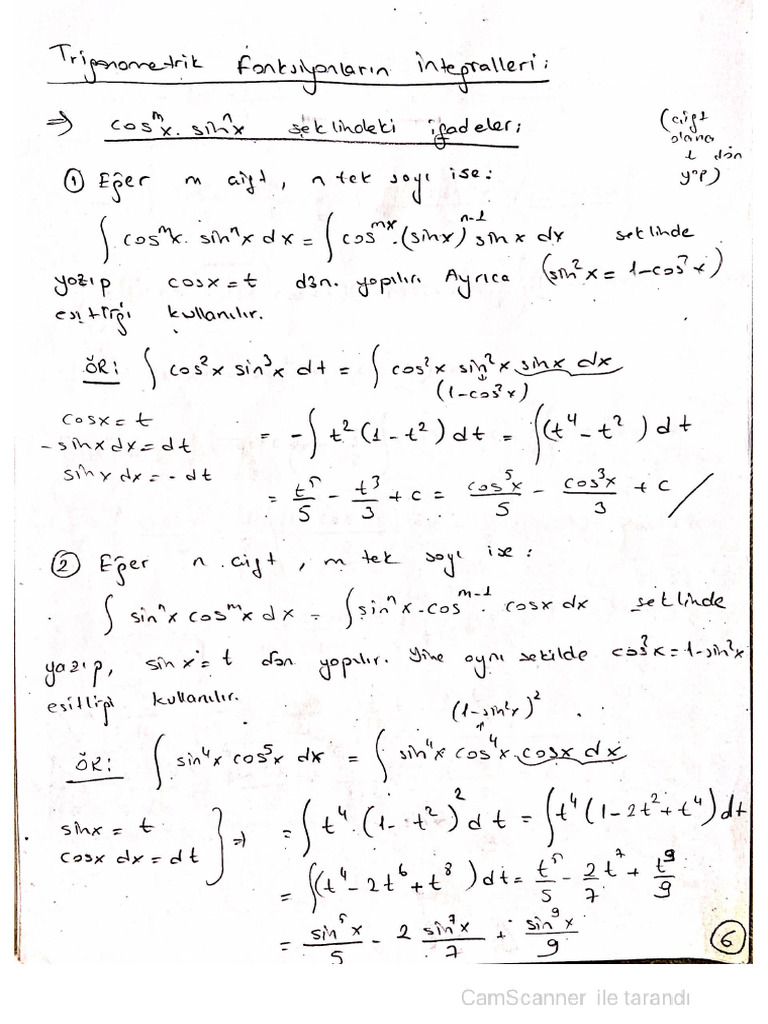 Trigonometrik fonksiyonların integralleri:
⇒ cosᵐx. sinⁿx şeklindeki ifadeler; (çift olana t dön yap)
① Eğer m çift, n tek sayı ise:
∫ cosᵐx. sinⁿx dx = ∫ cosᵐˣ.(sinx)ⁿ⁻¹ sinx dx şeklinde
yazıp cosx = t dön. yapılır. Ayrıca (sin²x = 1-cos²x)
eşitliği kullanılır.
ÖR: ∫ cos²x sin³x dt = ∫ cos²x sin²x sinx dx
(1-cos²x)
cosx = t
-sinx dx = dt
sinx dx = -dt
= -∫ t² (1 - t²) dt = ∫(t⁴ - t²) dt
= t⁵/5 - t³/3 + c = cos⁵x/5 - cos³x/3 + c
② Eğer n çift, m tek sayı ise:
∫ sinⁿx cosᵐx dx = ∫ sinⁿx.cosᵐ⁻¹. cosx dx şeklinde
yazıp, sinx = t dön yapılır. Yine aynı şekilde cos²x = 1-sin²x
eşitliği kullanılır.
(1-sin²x)²
ÖR: ∫ sin⁴x cos⁵x dx = ∫ sin⁴x cos⁴x.cosx dx
sinx = t
cosx dx = dt } ⇒
= ∫ t⁴. (1 - t²)² dt = ∫ t⁴ (1 - 2t² + t⁴) dt
= ∫(t⁴ - 2t⁶ + t⁸) dt = t⁵/5 - 2/7 t⁷ + t⁹/9
= sin⁵x/5 - 2 sin⁷x/7 + sin⁹x/9
⑥
CamScanner ile tarandı